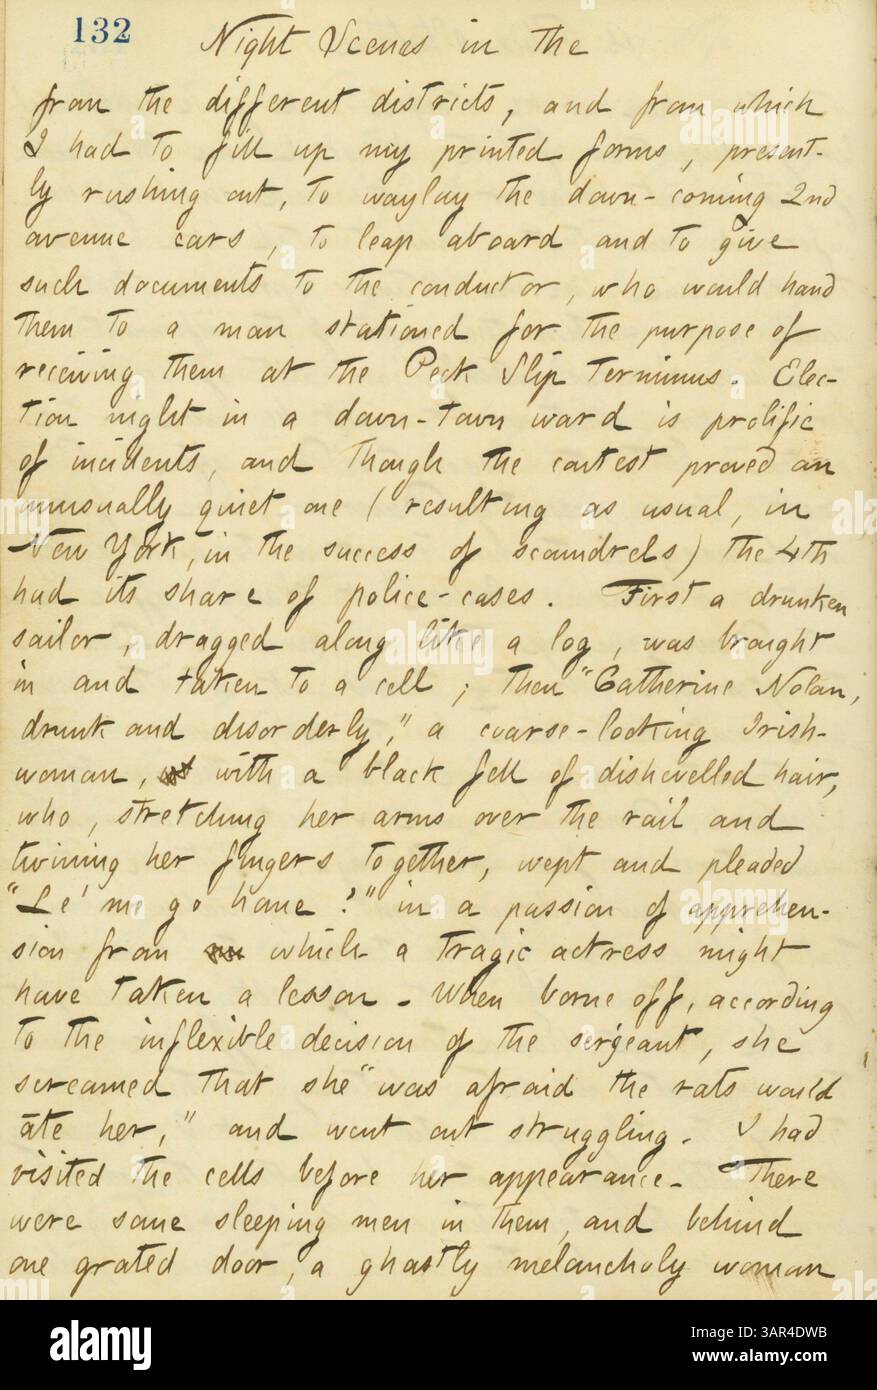 132
Night Scenes in the
from the different districts, and from which
I had to fill up my printed forms, present-
ly rushing out, to waylay the down-coming 2nd
avenue cars, to leap aboard and to give
such documents to the conductor, who would hand
them to a man stationed for the purpose of
receiving them at the Peck Slip Terminus. Elec-
tion night in a down-town ward is prolific
of incidents, and though the contest proved an
unusually quiet one (resulting as usual, in
New York, in the success of scoundrels) the 4th
had its share of police-cases. First a drunken
sailor, dragged along like a log, was brought
in and taken to a cell; then "Catherine Nolan,
drunk and disorderly," a coarse-looking Irish-
woman, with a black fell of dishevelled hair,
who, stretching her arms over the rail and
twining her fingers together, wept and pleaded
"Le' me go home!" in a passion of apprehen-
sion from which a tragic actress might
have taken a lesson. When borne off, according
to the inflexible decision of the sergeant, she
screamed that she "was afraid the rats would
ate her," and went out struggling. I had
visited the cells before her appearance. There
were some sleeping men in them, and behind
one grated door, a ghastly melancholy woman
alamy
Image ID: 3AR4DWB
www.alamy.com